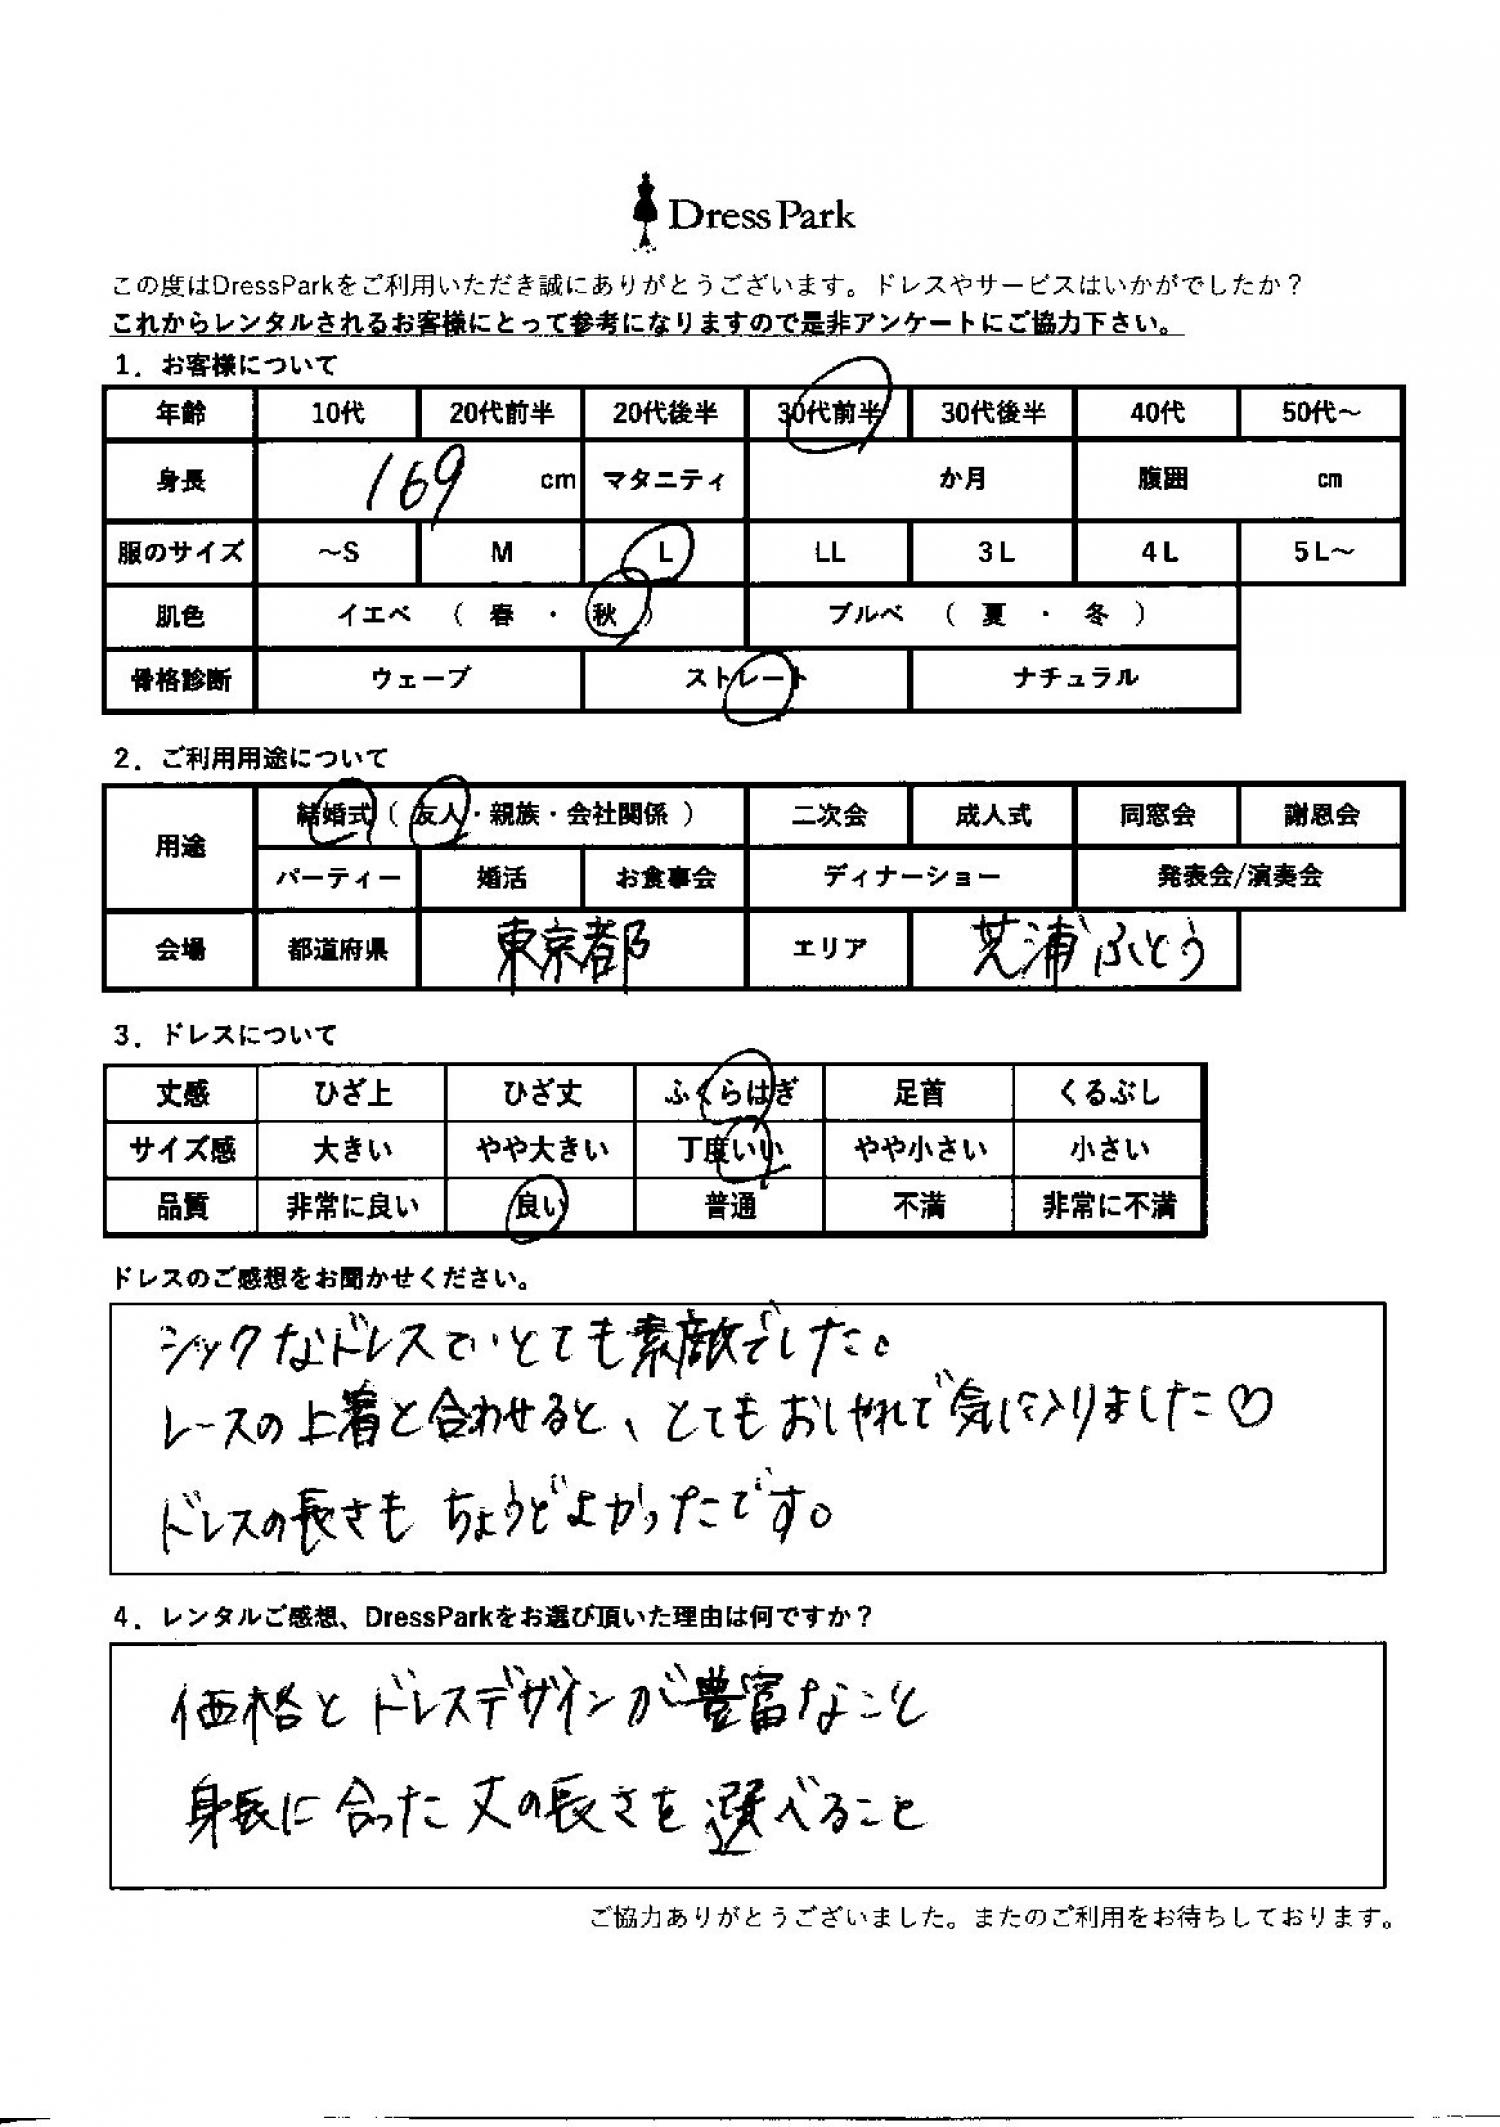 Dress Park
この度はDressParkをご利用いただき誠にありがとうございます。ドレスやサービスはいかがでしたか？
これからレンタルされるお客様にとって参考になりますので是非アンケートにご協力下さい。
1．お客様について
年齢 10代 20代前半 20代後半 30代前半 30代後半 40代 50代～
身長 169 cm マタニティ か月 腹囲 cm
服のサイズ ～S M L LL 3L 4L 5L～
肌色 イエベ （ 春 ・ 秋 ） ブルベ （ 夏 ・ 冬 ）
骨格診断 ウェーブ ストレート ナチュラル
2．ご利用用途について
用途 結婚式（ 友人・親族・会社関係 ） 二次会 成人式 同窓会 謝恩会
パーティー 婚活 お食事会 ディナーショー 発表会/演奏会
会場 都道府県 東京都 エリア 芝浦ふとう
3．ドレスについて
丈感 ひざ上 ひざ丈 ふくらはぎ 足首 くるぶし
サイズ感 大きい やや大きい 丁度いい やや小さい 小さい
品質 非常に良い 良い 普通 不満 非常に不満
ドレスのご感想をお聞かせください。
シックなドレスでとても素敵でした。
レースの上着と合わせると、とてもおしゃれで気に入りました♡
ドレスの長さも ちょうどよかったです。
4．レンタルご感想、DressParkをお選び頂いた理由は何ですか？
価格と ドレスデザインが豊富なこと
身長に合った丈の長さを選べること
ご協力ありがとうございました。またのご利用をお待ちしております。